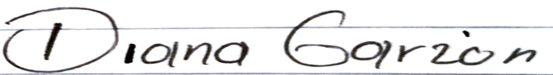 Diana Garzón